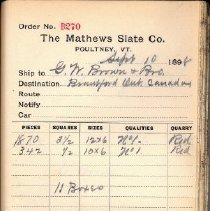 Order No. B270
The Mathews Slate Co.
POULTNEY, VT.
Sept 10 1898
Ship to G. W. Brown & Bro.
Destination Brantford Ont. Canada
Route
Notify
Car
PIECES SQUARES SIZES QUALITIES QUARRY
1870 5½ 12x6 No 1. Red
342 ½ 10x6 No 1 Red
11 Boxes